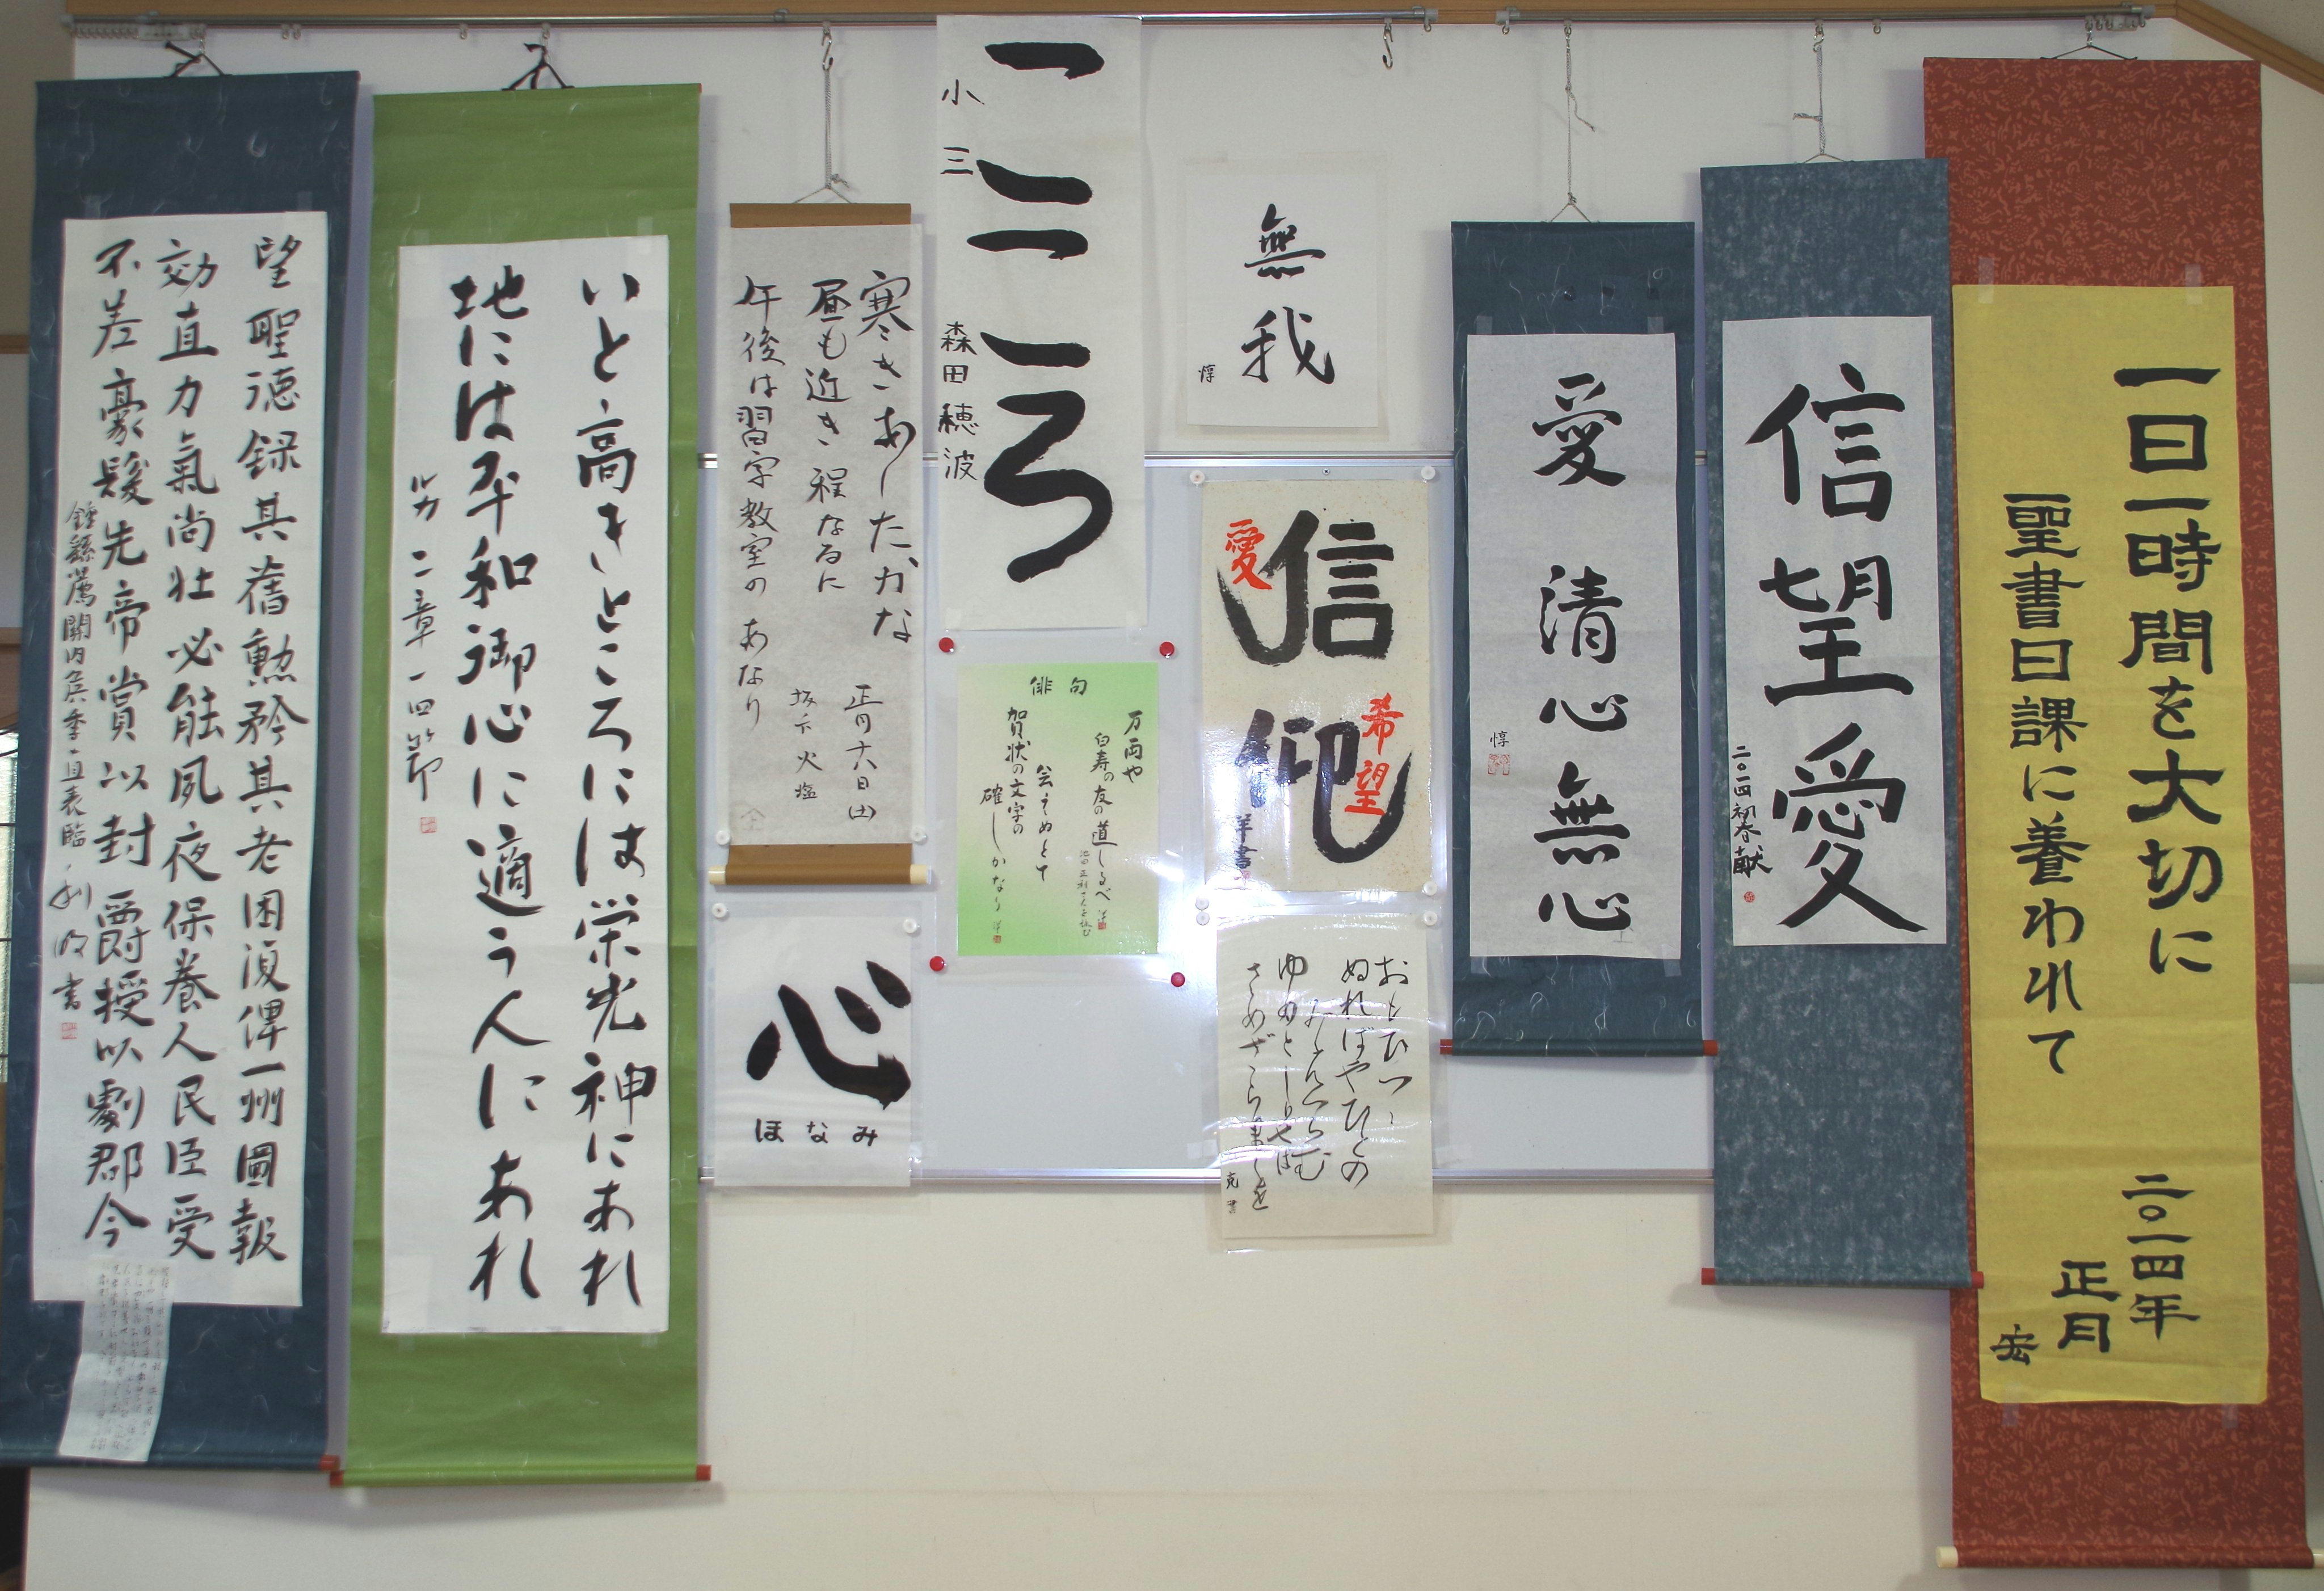 一日一時間を大切に
聖書日課に養われて
二〇一四年
正月
宏
信望愛
二〇一四初春献
愛清心無心
惇
無我
惇
信仰
愛
希望
洋書
おもひつゝ
ぬればやひとの
みえつらむ
ゆめとしりせば
さめざらましを
克書
こころ
小三 森田穂波
俳句
万両や
白寿の友の道しるべ
会えぬとて
賀状の文字の
確しかなり
寒きあしたかな
昼も近き程なるに
午後は習字教室のあなり
正月六日(土)
心
ほなみ
いと高きところには栄光神にあれ
地には平和御心に適う人にあれ
ルカ二章一四節
望聖徳録其舊勲矜其老困復俾一州圖報
効直力氣尚壮必能夙夜保養人民臣受
不差豪髪先帝賞以封爵授以劇郡今
鍾繇薦関内侯季直表臨